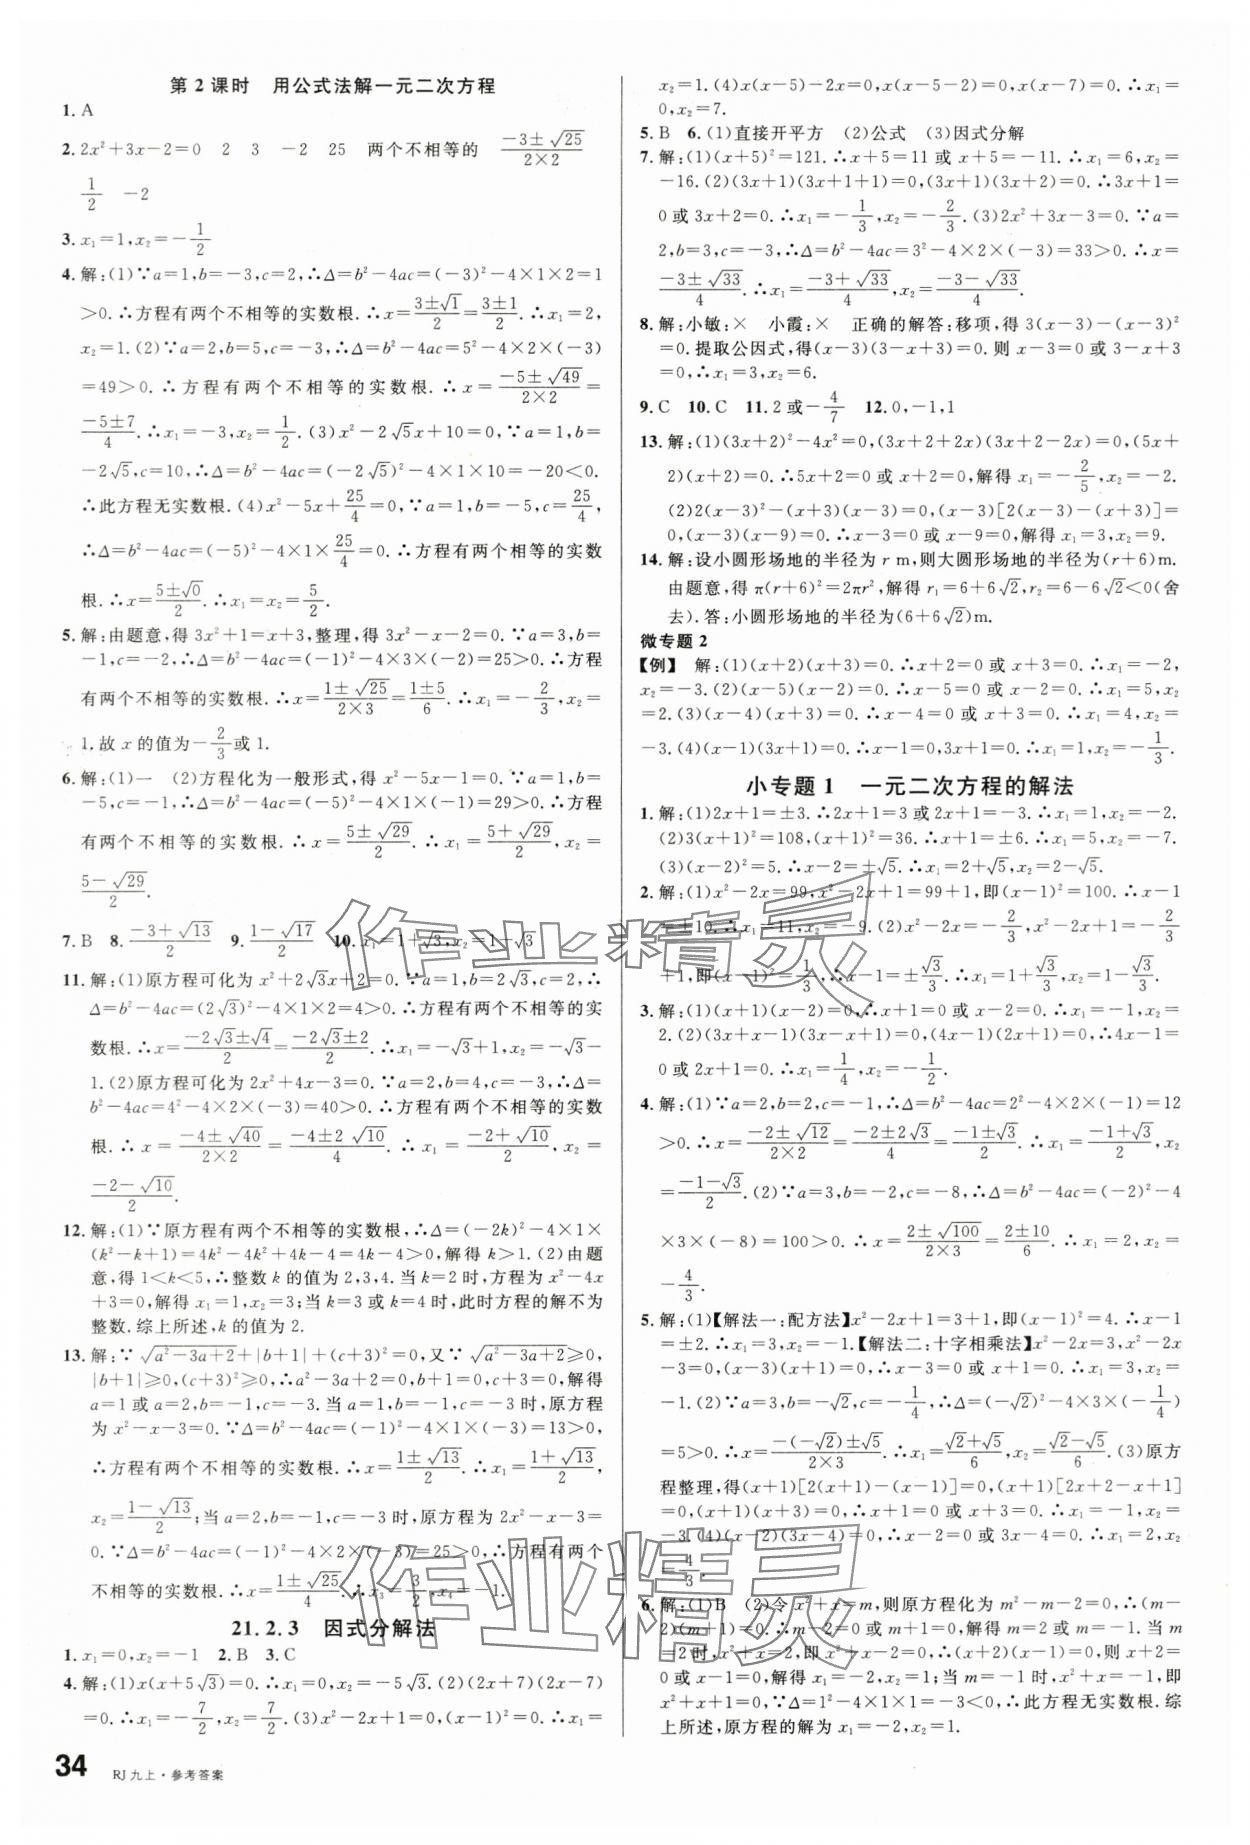 第 2 课时　用公式法解一元二次方程
1. A
2. 2x²+3x-2=0　2　3　-2　25　两个不相等的　(-3±√25)/(2×2)
1/2　-2
3. x₁=1,x₂=-1/2
4. 解:(1)∵a=1,b=-3,c=2,∴Δ=b²-4ac=(-3)²-4×1×2=1
>0.∴方程有两个不相等的实数根.∴x=(3±√1)/2=(3±1)/2.∴x₁=2,
x₂=1.(2)∵a=2,b=5,c=-3,∴Δ=b²-4ac=5²-4×2×(-3)
=49>0.∴方程有两个不相等的实数根.∴x=(-5±√49)/(2×2)=
(-5±7)/4.∴x₁=-3,x₂=1/2.(3)x²-2√5x+10=0,∵a=1,b=
-2√5,c=10,∴Δ=b²-4ac=(-2√5)²-4×1×10=-20<0.
∴此方程无实数根.(4)x²-5x+25/4=0,∵a=1,b=-5,c=25/4,
∴Δ=b²-4ac=(-5)²-4×1×25/4=0.∴方程有两个相等的实数
根.∴x=(5±√0)/2.∴x₁=x₂=5/2.
5. 解:由题意,得 3x²+1=x+3,整理,得 3x²-x-2=0.∵a=3,b=
-1,c=-2,∴Δ=b²-4ac=(-1)²-4×3×(-2)=25>0.∴方程
有两个不相等的实数根.∴x=(1±√25)/(2×3)=(1±5)/6.∴x₁=-2/3,x₂=
1,故 x 的值为-2/3或 1.
6. 解:(1)一　(2)方程化为一般形式,得 x²-5x-1=0.∵a=1,b=
-5,c=-1,∴Δ=b²-4ac=(-5)²-4×1×(-1)=29>0.∴方程
有两个不相等的实数根.∴x=(5±√29)/2.∴x₁=(5+√29)/2,x₂=
(5-√29)/2.
7. B　8. (-3+√13)/2　9. (1-√17)/2　10. x₁=1+√3,x₂=1-√3
11. 解:(1)原方程可化为 x²+2√3x+2=0.∵a=1,b=2√3,c=2,∴
Δ=b²-4ac=(2√3)²-4×1×2=4>0.∴方程有两个不相等的实
数根.∴x=(-2√3±√4)/2=(-2√3±2)/2.∴x₁=-√3+1,x₂=-√3-
1.(2)原方程可化为 2x²+4x-3=0.∵a=2,b=4,c=-3,∴Δ=
b²-4ac=4²-4×2×(-3)=40>0.∴方程有两个不相等的实数
根.∴x=(-4±√40)/(2×2)=(-4±2√10)/4.∴x₁=(-2+√10)/2,x₂=
(-2-√10)/2.
12. 解:(1)∵原方程有两个不相等的实数根,∴Δ=(-2k)²-4×1×
(k²-k+1)=4k²-4k²+4k-4=4k-4>0,解得 k>1.(2)由题
意,得 1<k<5,∴整数 k 的值为 2,3,4.当 k=2 时,方程为 x²-4x
+3=0,解得 x₁=1,x₂=3;当 k=3 或 k=4 时,此时方程的解不为
整数.综上所述,k 的值为 2.
13. 解:∵√(a²-3a+2)+|b+1|+(c+3)²=0,又∵√(a²-3a+2)≥0,
|b+1|≥0,(c+3)²≥0,∴a²-3a+2=0,b+1=0,c+3=0,解得
a=1或 a=2,b=-1,c=-3.当 a=1,b=-1,c=-3 时,原方程
为 x²-x-3=0.∵Δ=b²-4ac=(-1)²-4×1×(-3)=13>0,
∴方程有两个不相等的实数根.∴x=(1±√13)/2.∴x₁=(1+√13)/2,
x₂=(1-√13)/2;当 a=2,b=-1,c=-3 时,原方程为 2x²-x-3=
0.∵Δ=b²-4ac=(-1)²-4×2×(-3)=25>0,∴方程有两个
不相等的实数根.∴x=(1±√25)/4.∴x₃=3/2,x₄=-1.
21.2.3　因式分解法
1. x₁=0,x₂=-1　2. B　3. C
4. 解:(1)x(x+5√3)=0.∴x₁=0,x₂=-5√3.(2)(2x+7)(2x-7)
=0.∴x₁=-7/2,x₂=7/2.(3)x²-2x+1=0,(x-1)²=0.∴x₁=
x₂=1.(4)x(x-5)-2x=0,x(x-5-2)=0,x(x-7)=0.∴x₁=
0,x₂=7.
5. B　6. (1)直接开平方　(2)公式　(3)因式分解
7. 解:(1)(x+5)²=121.∴x+5=11 或 x+5=-11.∴x₁=6,x₂=
-16.(2)(3x+1)(3x+1+1)=0,(3x+1)(3x+2)=0.∴3x+1=
0 或 3x+2=0.∴x₁=-1/3,x₂=-2/3.(3)2x²+3x-3=0.∵a=
2,b=3,c=-3,∴Δ=b²-4ac=3²-4×2×(-3)=33>0.∴x=
(-3±√33)/4.∴x₁=(-3+√33)/4,x₂=(-3-√33)/4.
8. 解:小敏:×　小霞:×　正确的解答:移项,得 3(x-3)-(x-3)²
=0.提取公因式,得(x-3)(3-x+3)=0.则 x-3=0 或 3-x+3
=0,∴x₁=3,x₂=6.
9. C　10. C　11. 2 或-4/7　12. 0,-1,1
13. 解:(1)(3x+2)²-4x²=0,(3x+2+2x)(3x+2-2x)=0,(5x+
2)(x+2)=0.∴5x+2=0 或 x+2=0,解得 x₁=-2/5,x₂=-2.
(2)2(x-3)²-(x+3)(x-3)=0,(x-3)[2(x-3)-(x+3)]=
0,(x-3)(x-9)=0.∴x-3=0 或 x-9=0,解得 x₁=3,x₂=9.
14. 解:设小圆形场地的半径为 r m,则大圆形场地的半径为(r+6)m.
由题意,得 π(r+6)²=2πr²,解得 r₁=6+6√2,r₂=6-6√2<0(舍
去).答:小圆形场地的半径为(6+6√2)m.
微专题 2
【例】 解:(1)(x+2)(x+3)=0.∴x+2=0 或 x+3=0.∴x₁=-2,
x₂=-3.(2)(x-5)(x-2)=0.∴x-5=0 或 x-2=0.∴x₁=5,x₂
=2.(3)(x-4)(x+3)=0.∴x-4=0 或 x+3=0.∴x₁=4,x₂=
-3.(4)(x-1)(3x+1)=0.∴x-1=0 或 3x+1=0.∴x₁=1,x₂=-1/3.
小专题 1　一元二次方程的解法
1. 解:(1)2x+1=±3.∴2x+1=3 或 2x+1=-3.∴x₁=1,x₂=-2.
(2)3(x+1)²=108,(x+1)²=36.∴x+1=±6.∴x₁=5,x₂=-7.
(3)(x-2)²=5.∴x-2=±√5.∴x₁=2+√5,x₂=2-√5.
2. 解:(1)x²-2x=99,x²-2x+1=99+1,即(x-1)²=100.∴x-1
=±10.∴x₁=11,x₂=-9.(2)x²-2x=-2/3,x²-2x+1=-2/3
+1,即(x-1)²=1/3.∴x-1=±√3/3.∴x₁=1+√3/3,x₂=1-√3/3.
3. 解:(1)(x+1)(x-2)=0,∴x+1=0 或 x-2=0.∴x₁=-1,x₂=
2.(2)(3x+x-1)(3x-x+1)=0,(4x-1)(2x+1)=0.∴4x-1=
0 或 2x+1=0.∴x₁=1/4,x₂=-1/2.
4. 解:(1)∵a=2,b=2,c=-1,∴Δ=b²-4ac=2²-4×2×(-1)=12
>0.∴x=(-2±√12)/(2×2)=(-2±2√3)/4=(-1±√3)/2.∴x₁=(-1+√3)/2,x₂
=(-1-√3)/2.(2)∵a=3,b=-2,c=-8,∴Δ=b²-4ac=(-2)²-4
×3×(-8)=100>0.∴x=(2±√100)/(2×3)=(2±10)/6.∴x₁=2,x₂=
-4/3.
5. 解:(1)【解法一:配方法】x²-2x+1=3+1,即(x-1)²=4.∴x-1
=±2.∴x₁=3,x₂=-1.【解法二:十字相乘法】x²-2x=3,x²-2x
-3=0,(x-3)(x+1)=0.∴x-3=0 或 x+1=0.∴x₁=3,x₂=
-1.(2)∵a=3,b=-√2,c=-1/4,∴Δ=(-√2)²-4×3×(-1/4)
=5>0.∴x=(-(-√2)±√5)/(2×3).∴x₁=(√2+√5)/6,x₂=(√2-√5)/6.(3)原方
程整理,得(x+1)[2(x+1)-(x-1)]=0,(x+1)[2x+2-x+1]
=0,(x+1)(x+3)=0.∴x+1=0 或 x+3=0.∴x₁=-1,x₂=
-3.(4)(x-2)(3x-4)=0,∴x-2=0 或 3x-4=0.∴x₁=2,x₂
=4/3.
6. 解:(1)B　(2)令 x²+x=m,则原方程化为 m²-m-2=0.∴(m-
2)(m+1)=0.∴m-2=0 或 m+1=0.解得 m=2 或 m=-1.当
m=2 时,x²+x=2,即 x²+x-2=0.∴(x+2)(x-1)=0,则 x+2=
0 或 x-1=0,解得 x₁=-2,x₂=1;当 m=-1 时,x²+x=-1,即
x²+x+1=0,∵Δ=1²-4×1×1=-3<0,∴此方程无实数根.综
上所述,原方程的解为 x₁=-2,x₂=1.
34　RJ 九上·参考答案
作业精灵
作业精灵